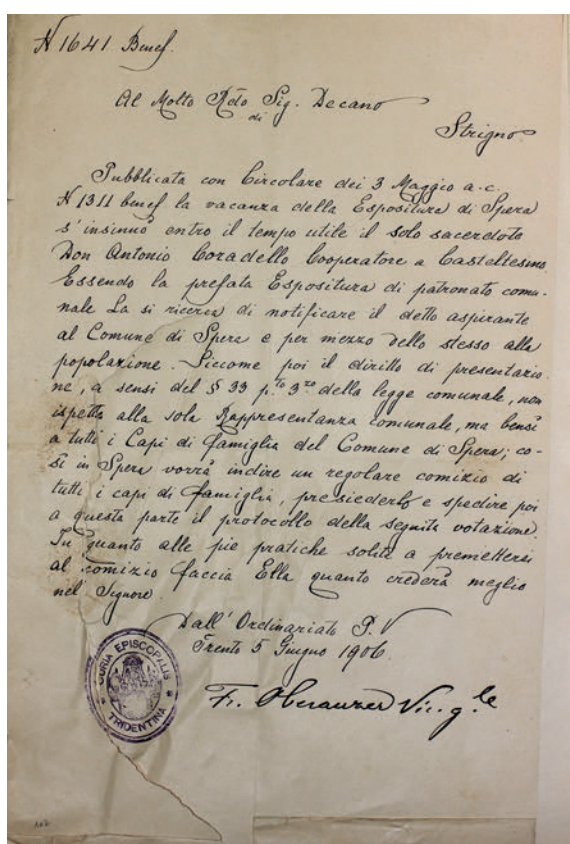 N 1641 Benef.
Al Molto Rdo Sig. Decano
di
Strigno
Pubblicata con Circolare dei 3 Maggio a.c.
N 1311 benef la vacanza della Espositura di Spera
s'insinuò entro il tempo utile il solo sacerdote
Don Antonio Coradello Cooperatore a Casteltesino.
Essendo la prefata Espositura di patronato comu-
nale La si ricerca di notificare il detto aspirante
al Comune di Spera e per mezzo dello stesso alla
popolazione. Siccome poi il diritto di presentazio-
ne, a sensi del § 33 p.to 3zo della legge comunale, non
ispetta alla sola Rappresentanza comunale, ma bensì
a tutti i Capi di famiglia del Comune di Spera; co-
sì in Spera vorrà indire un regolare comizio di
tutti i capi di famiglia, presiederlo e spedire poi
a questa parte il protocollo della seguita votazione.
In quanto alle pie pratiche solite a premettersi
al comizio faccia Ella quanto crederà meglio
nel Signore.
Dall' Ordinariato P. V
Trento 5 Giugno 1906.
Fr. Oberauzer Vic. gle
CURIA EPISCOPALIS
TRIDENTINA